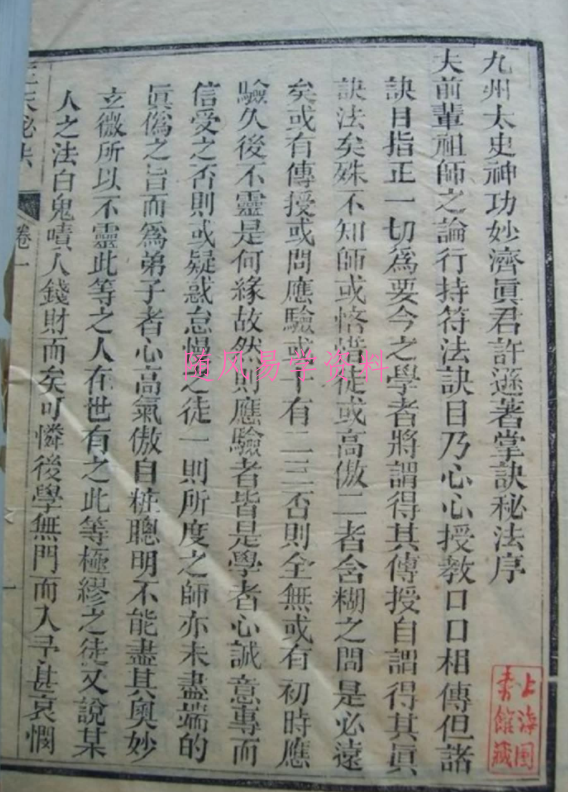 九州太史神功妙濟眞君許遜著掌訣秘法序
夫前輩祖師之論行持符法訣目乃心心授教口口相傳但諸
訣目指正一切爲要今之學者將謂得其傳授自謂得其眞
訣法矣殊不知師或悋惜徒或高傲二者含糊之間是必遠
矣或有傳授或問應驗或十有二三否則全無或有初時應
驗久後不靈是何緣故然則應驗者皆是學者心誠意專而
信受之否則或疑惑怠慢之徒一則所度之師亦未盡端的
眞僞之旨而爲弟子者心高氣傲自粧聰明不能盡其奧妙
玄微所以不靈此等之人在世有之此等極繆之徒又說某
人之法白鬼嘖人錢財而矣可憐後學無門而入予甚哀憫
秘法
卷一
一
随风易学资料
上海图
书館藏